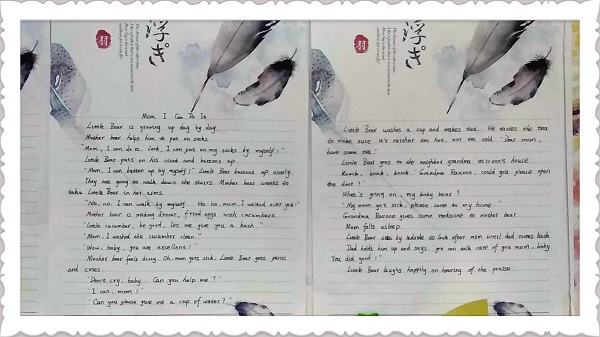 Mom I Can Do It
Little Bear is growing up day by day.
Mother bear helps him to put on socks
"Mom, I can do it. Look, I can put on my socks by myself!"
Little Bear puts on his coat and buttons up.
"Mom, I can button up by myself!" Little Bear buttons up nicely.
They are going to walk down the stairs. Mother bear wants to
take Little Bear in her arms.
"No, no. I can walk by myself. Ha-ha, mom. I walked over you!"
Mother bear is making dinner, fried eggs with cucumbers.
"Little cucumber, be good, let me give you a bath."
"Mom, I washed the cucumber clean."
"Wow, baby, you are excellent!"
Mother bear feels dizzy. Oh, mom gets sick. Little Bear gets panic
and cries.
"Don't cry, baby. Can you help me?"
"I can, mom!"
"Can you please give me a cup of water?"
Little Bear washes a cup and makes tea. He tastes the tea
to make sure it's neither too hot, nor too cold. "Dear mom,
have some tea."
Little Bear goes to the neighbor grandma raccoon's house.
Knock, knock, knock. "Grandma Raccoon, could you please open
the door?"
"What's going on, my baby bear?"
"My mom got sick, please come to my home."
Grandma Raccoon gives some medicine to mother bear.
Mom falls asleep.
Little Bear sits by bedside to look after mom until dad comes back.
Dad holds him up and says, you can take care of your mom, baby.
You did good!"
Little Bear laughs happily on hearing of the praise.